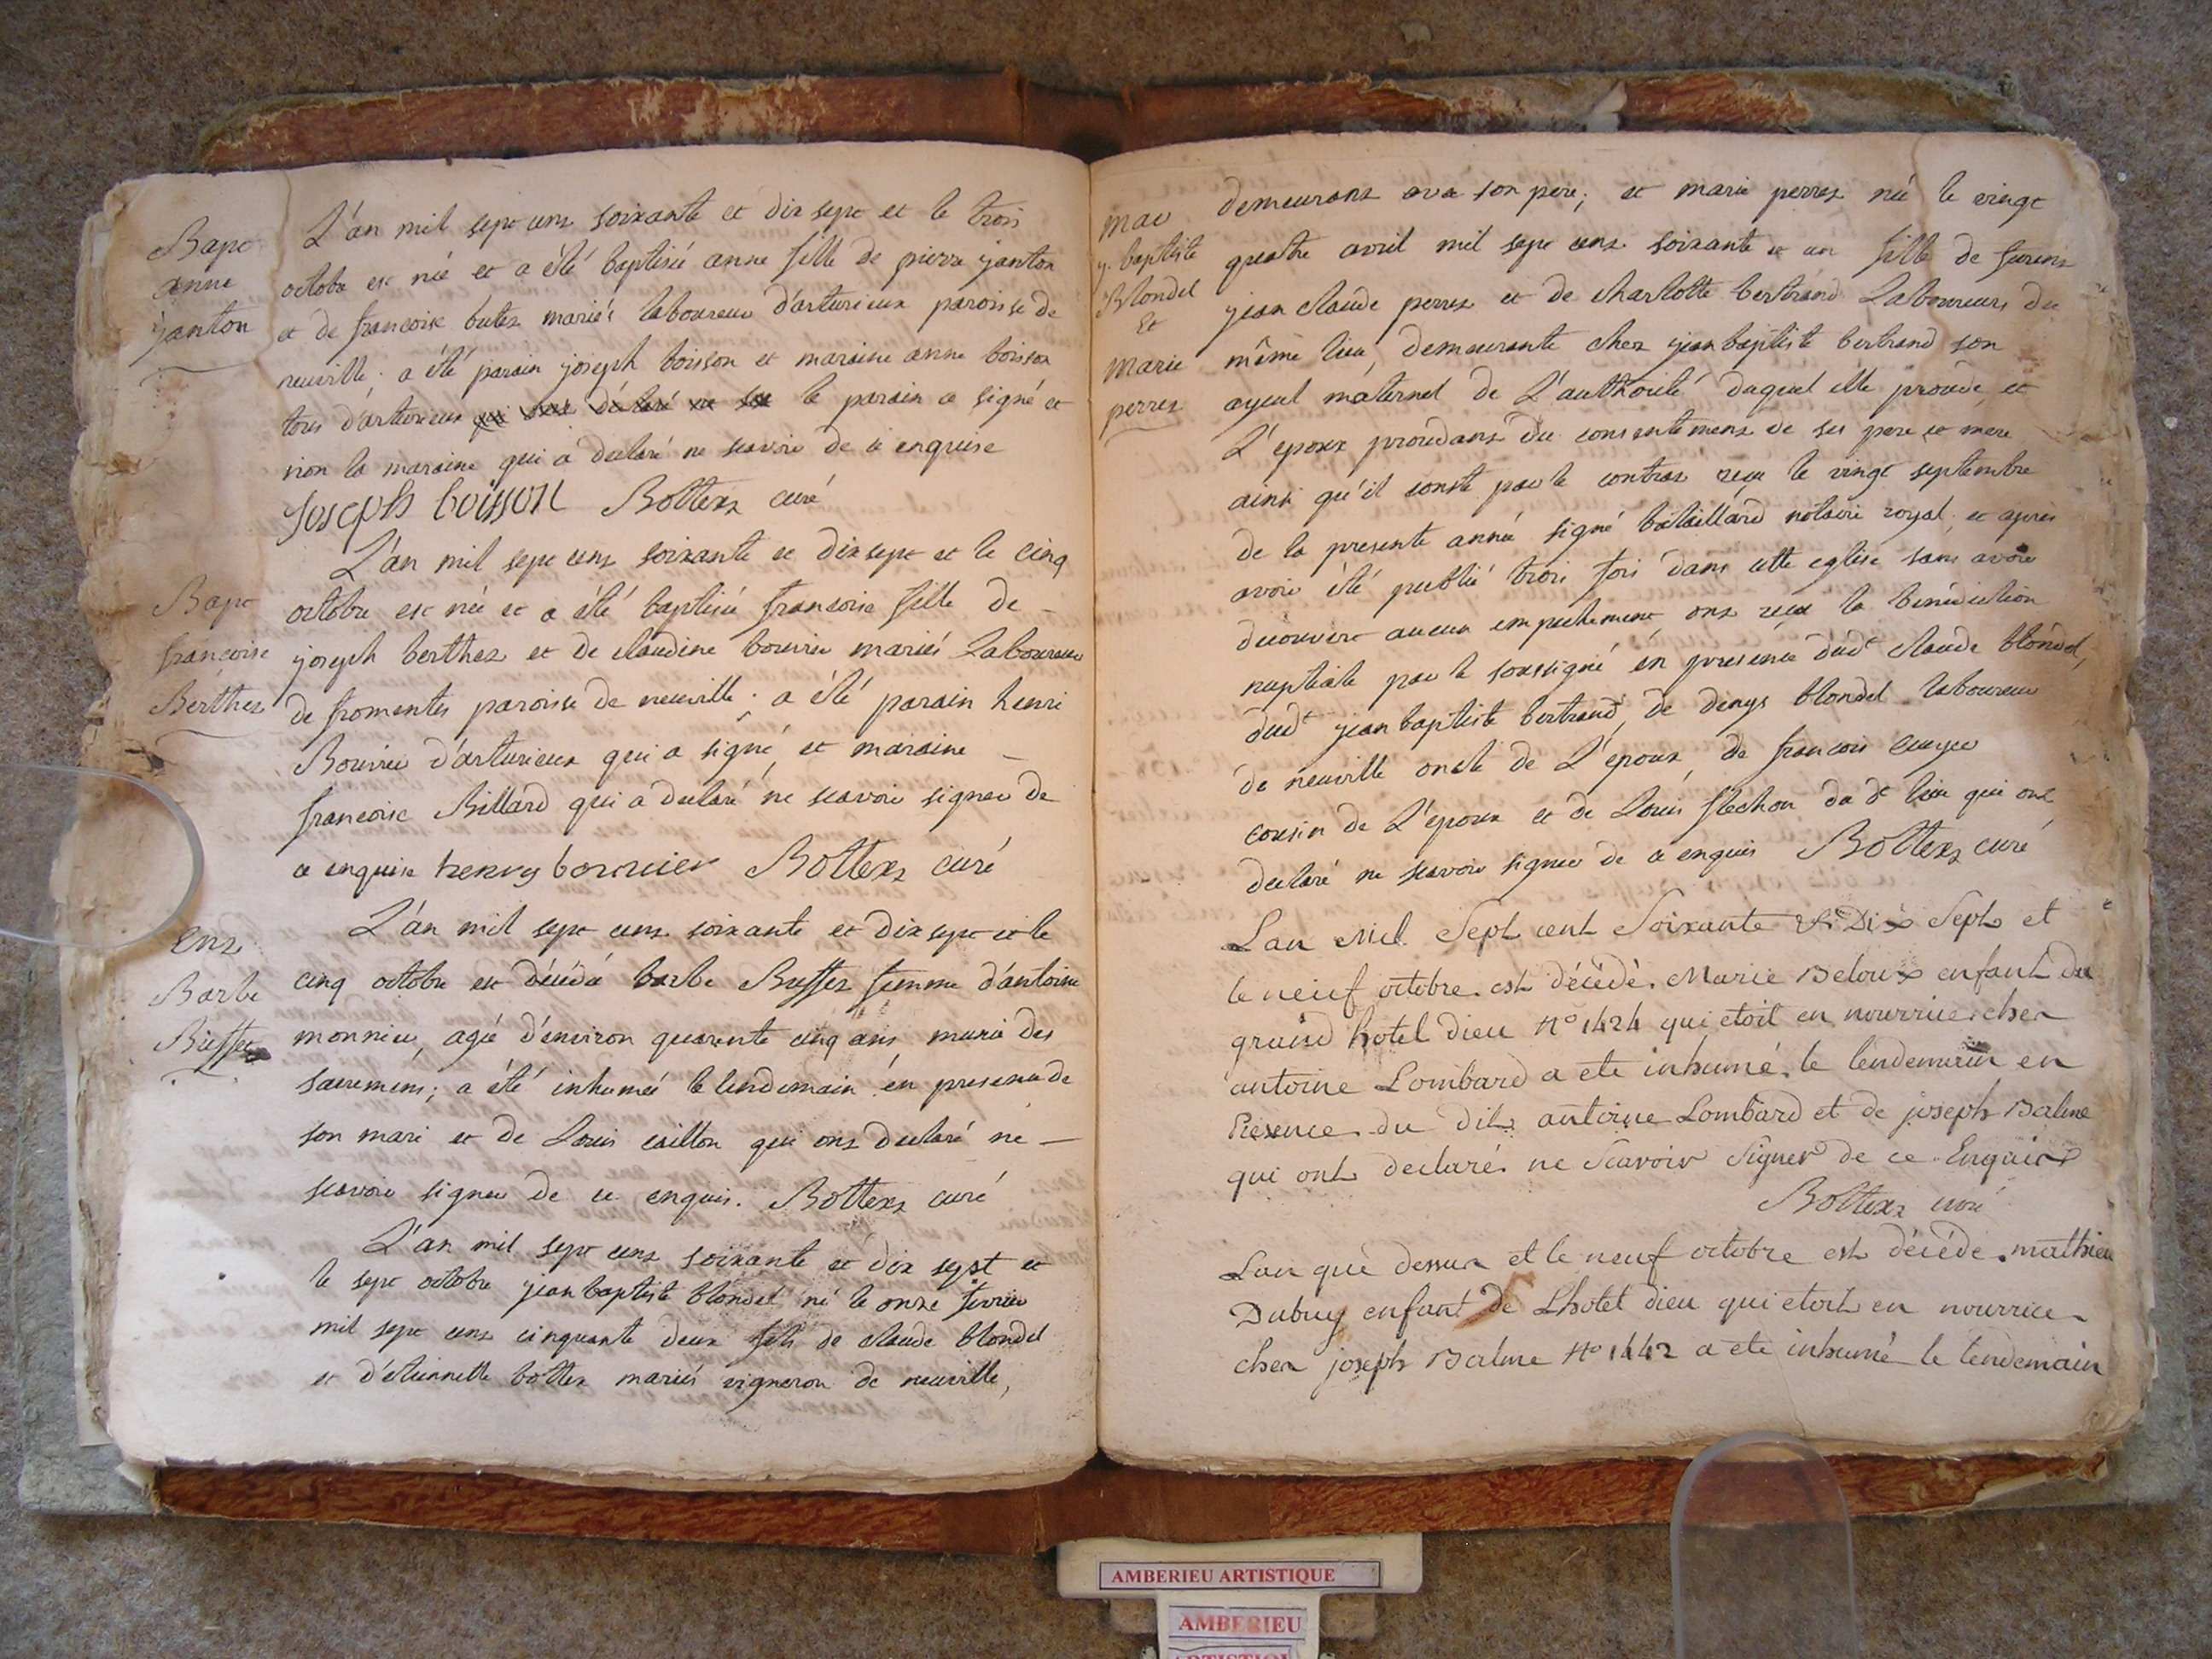 Bapt
anne
janton
L'an mil sept cens soixante et dix sept et le trois
octobre est née et a été baptisée anne fille de pierre janton
et de francoise butez mariés laboureur d'arturieux paroisse de
neuville; a été parain joseph boisson et maraine anne boisson
tous d'arturieux qui le parain a signé et
non la maraine qui a declaré ne scavoir de ce enquise
joseph boisson Bottex curé
Bapt
francoise
Berthez
L'an mil sept cens soixante et dix sept et le cinq
octobre est née et a été baptisée francoise fille de
joseph berthez et de claudine bouvier mariés Laboureur
de fromentes paroisse de neuville; a été parain henri
Bouvier d'arturieux qui a signé, et maraine
francoise Billard qui a declaré ne scavoir signer de
ce enquise henry bouvier Bottex curé
Ent
Barbe
Buffet
L'an mil sept cens soixante et dix sept et le
cinq octobre est décédée barbe Buffet femme d'antoine
monnier, agée d'environ quarente cinq ans munie des
sacremens; a été inhumée le lendemain en presence de
son mari et de Louis caillon qui ont declaré ne
scavoir signer de ce enquis. Bottex curé
L'an mil sept cens soixante et dix sept et
le sept octobre jean baptiste blondel né le onze fevrier
mil sept cens cinquante deux fils de claude blondel
et d'étiennette bottex mariés vigneron de neuville,
Mar
j. baptiste
Blondel
Et
Marie
perrez
demeurant avec son pere; et marie perrez née le vingt
quatre avril mil sept cens soixante et un fille de
jean claude perrez et de charlotte bertrand Laboureurs du
même lieu, demeurante chez jean baptiste bertrand son
ayeul maternel de L'authorité duquel elle procede, et
L'epoux procedant du consentement de ses pere et mere
ainsi qu'il conste par le contrat reçu le vingt septembre
de la presente année signé bataillard notaire royal, et apres
avoir été publié trois fois dans cette eglise sans avoir
decouvert aucun empechement ont reçu la bénédiction
nuptiale par le soussigné en presence dudt claude blondel,
dudt jean baptiste bertrand, de denys blondel laboureur
de neuville oncle de L'epoux, de francois
cousin de L'epoux et de Louis flechon du dt lieu qui ont
declaré ne scavoir signer de ce enquis Bottex curé
Lan Mil Sept cent Soixante Et Dix Sept et
le neuf octobre est décédé Marie Beloux enfant du
grand hotel dieu No 1424 qui etoit en nourrice chez
antoine Lombard a ete inhumé le lendemain en
Presence du dit antoine Lombard et de joseph Balme
qui ont declaré ne Scavoir Signer de ce Enquis
Bottex curé
Lan que dessus et le neuf octobre est décédé mathieu
Dubuy enfant de Lhotel dieu qui etoit en nourrice
chez joseph Balme No 1442 a ete inhumé le lendemain
AMBERIEU ARTISTIQUE
AMBERIEU